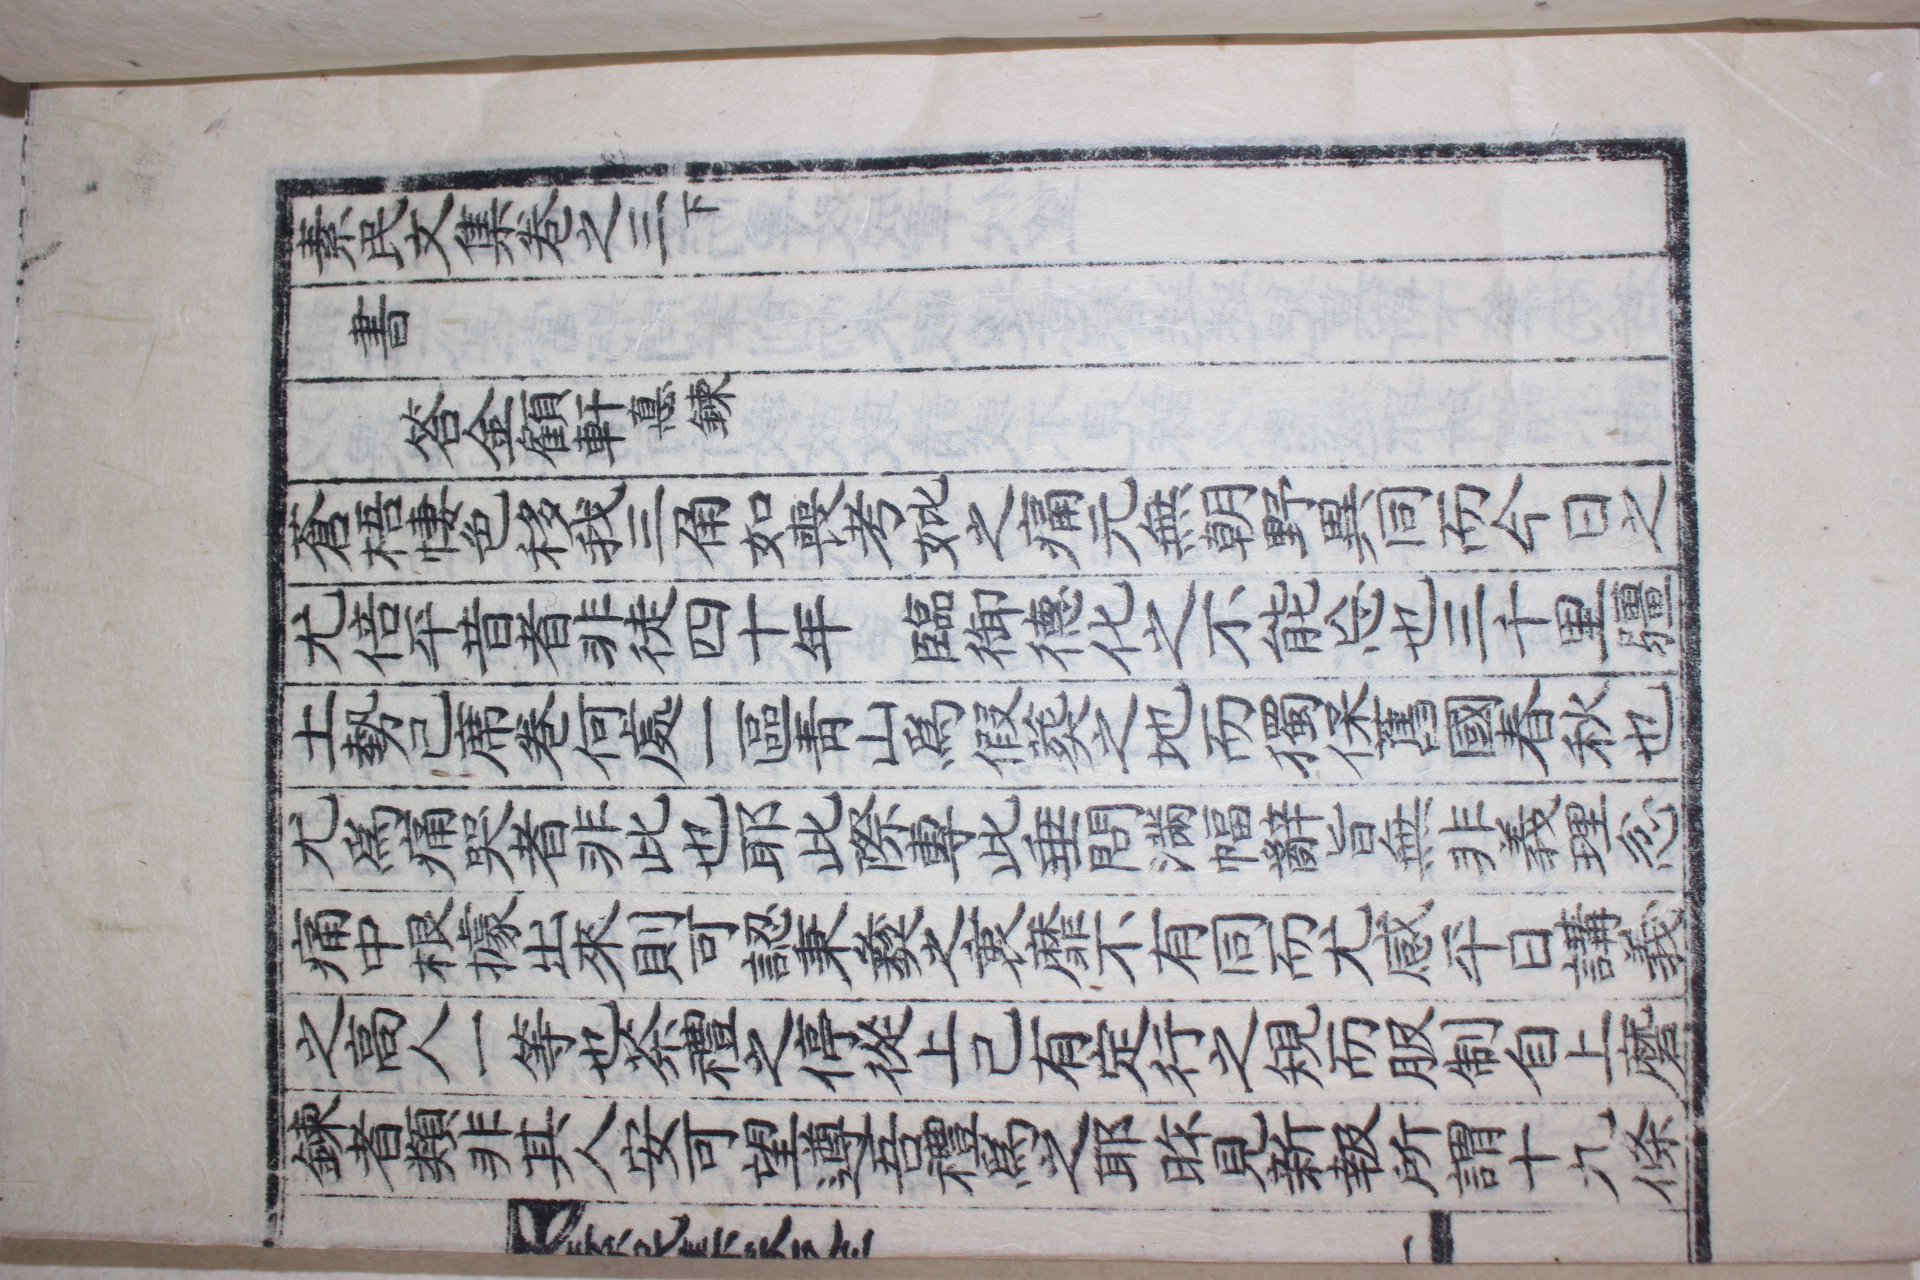 素民文集卷之三下
書
答金顧軒憙鍊
蒼梧悽色移我三角如喪考妣之痛元無朝野異同而今日之
尤倍平昔者非徒四十年 臨御德化之不能忘也三千里疆
土勢已席卷何處一區靑山爲假葬之地而獨保舊國春秋也
尤爲痛哭者非此也耶此際專此垂問滿幅辭旨無非義理忿
痛中根據出來則可認秉彜之衷靡不有同而尤感平日講義
之高人一等也祭禮之停從上已有定行之規而服制自上磨
鍊者類非其人安可望遵吾禮爲之耶昨見新報所謂十九條